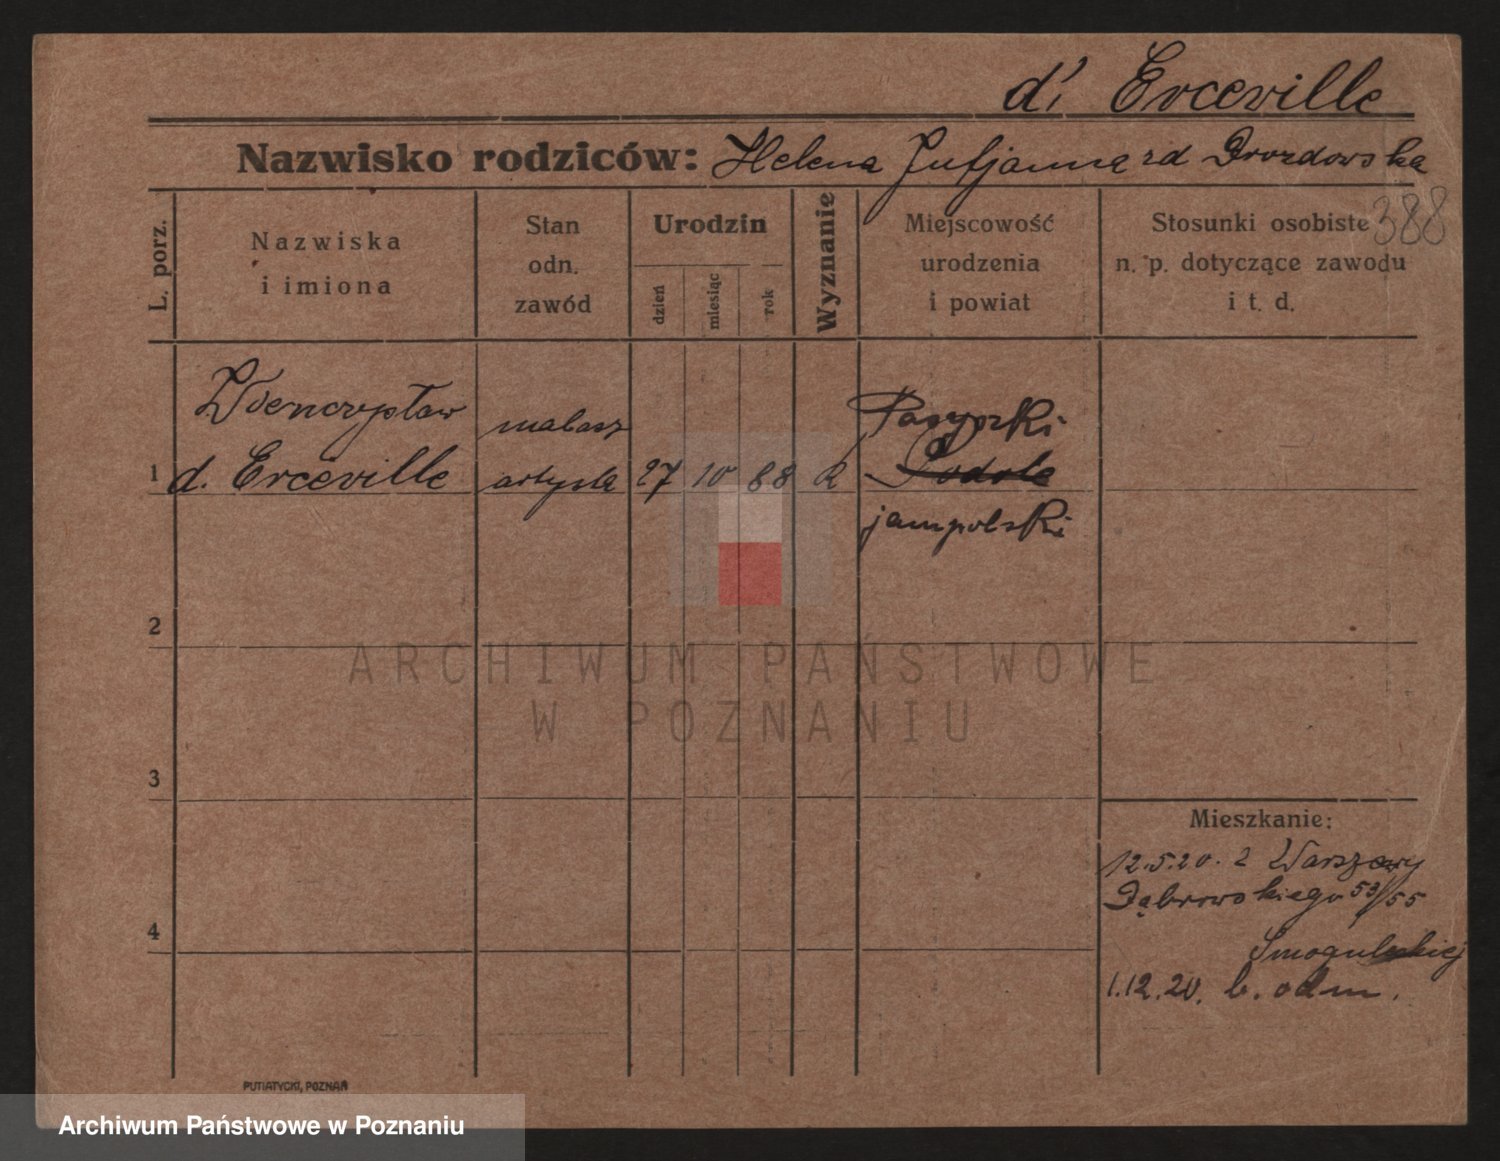 d' Erceville
Nazwisko rodziców: Helena Jufjanna zd Drozdowska
388
L. porz.
Nazwiska
i imiona
Stan
odn.
zawód
Urodzin
dzień
miesiąc
rok
Wyznanie
Miejscowość
urodzenia
i powiat
Stosunki osobiste
n. p. dotyczące zawodu
i t. d.
1
Wienczysław
d. Erceville
malarz
artysta
27
10
88
R
Podole
jampolski
2
3
4
Mieszkanie:
12.5.20. z Warszawy
Dąbrowskiego 53/55
Smoguleckiej
1.12.20. b. odm.
PUTIATYCKI, POZNAŃ
ARCHIWUM PAŃSTWOWE
W POZNANIU
Archiwum Państwowe w Poznaniu